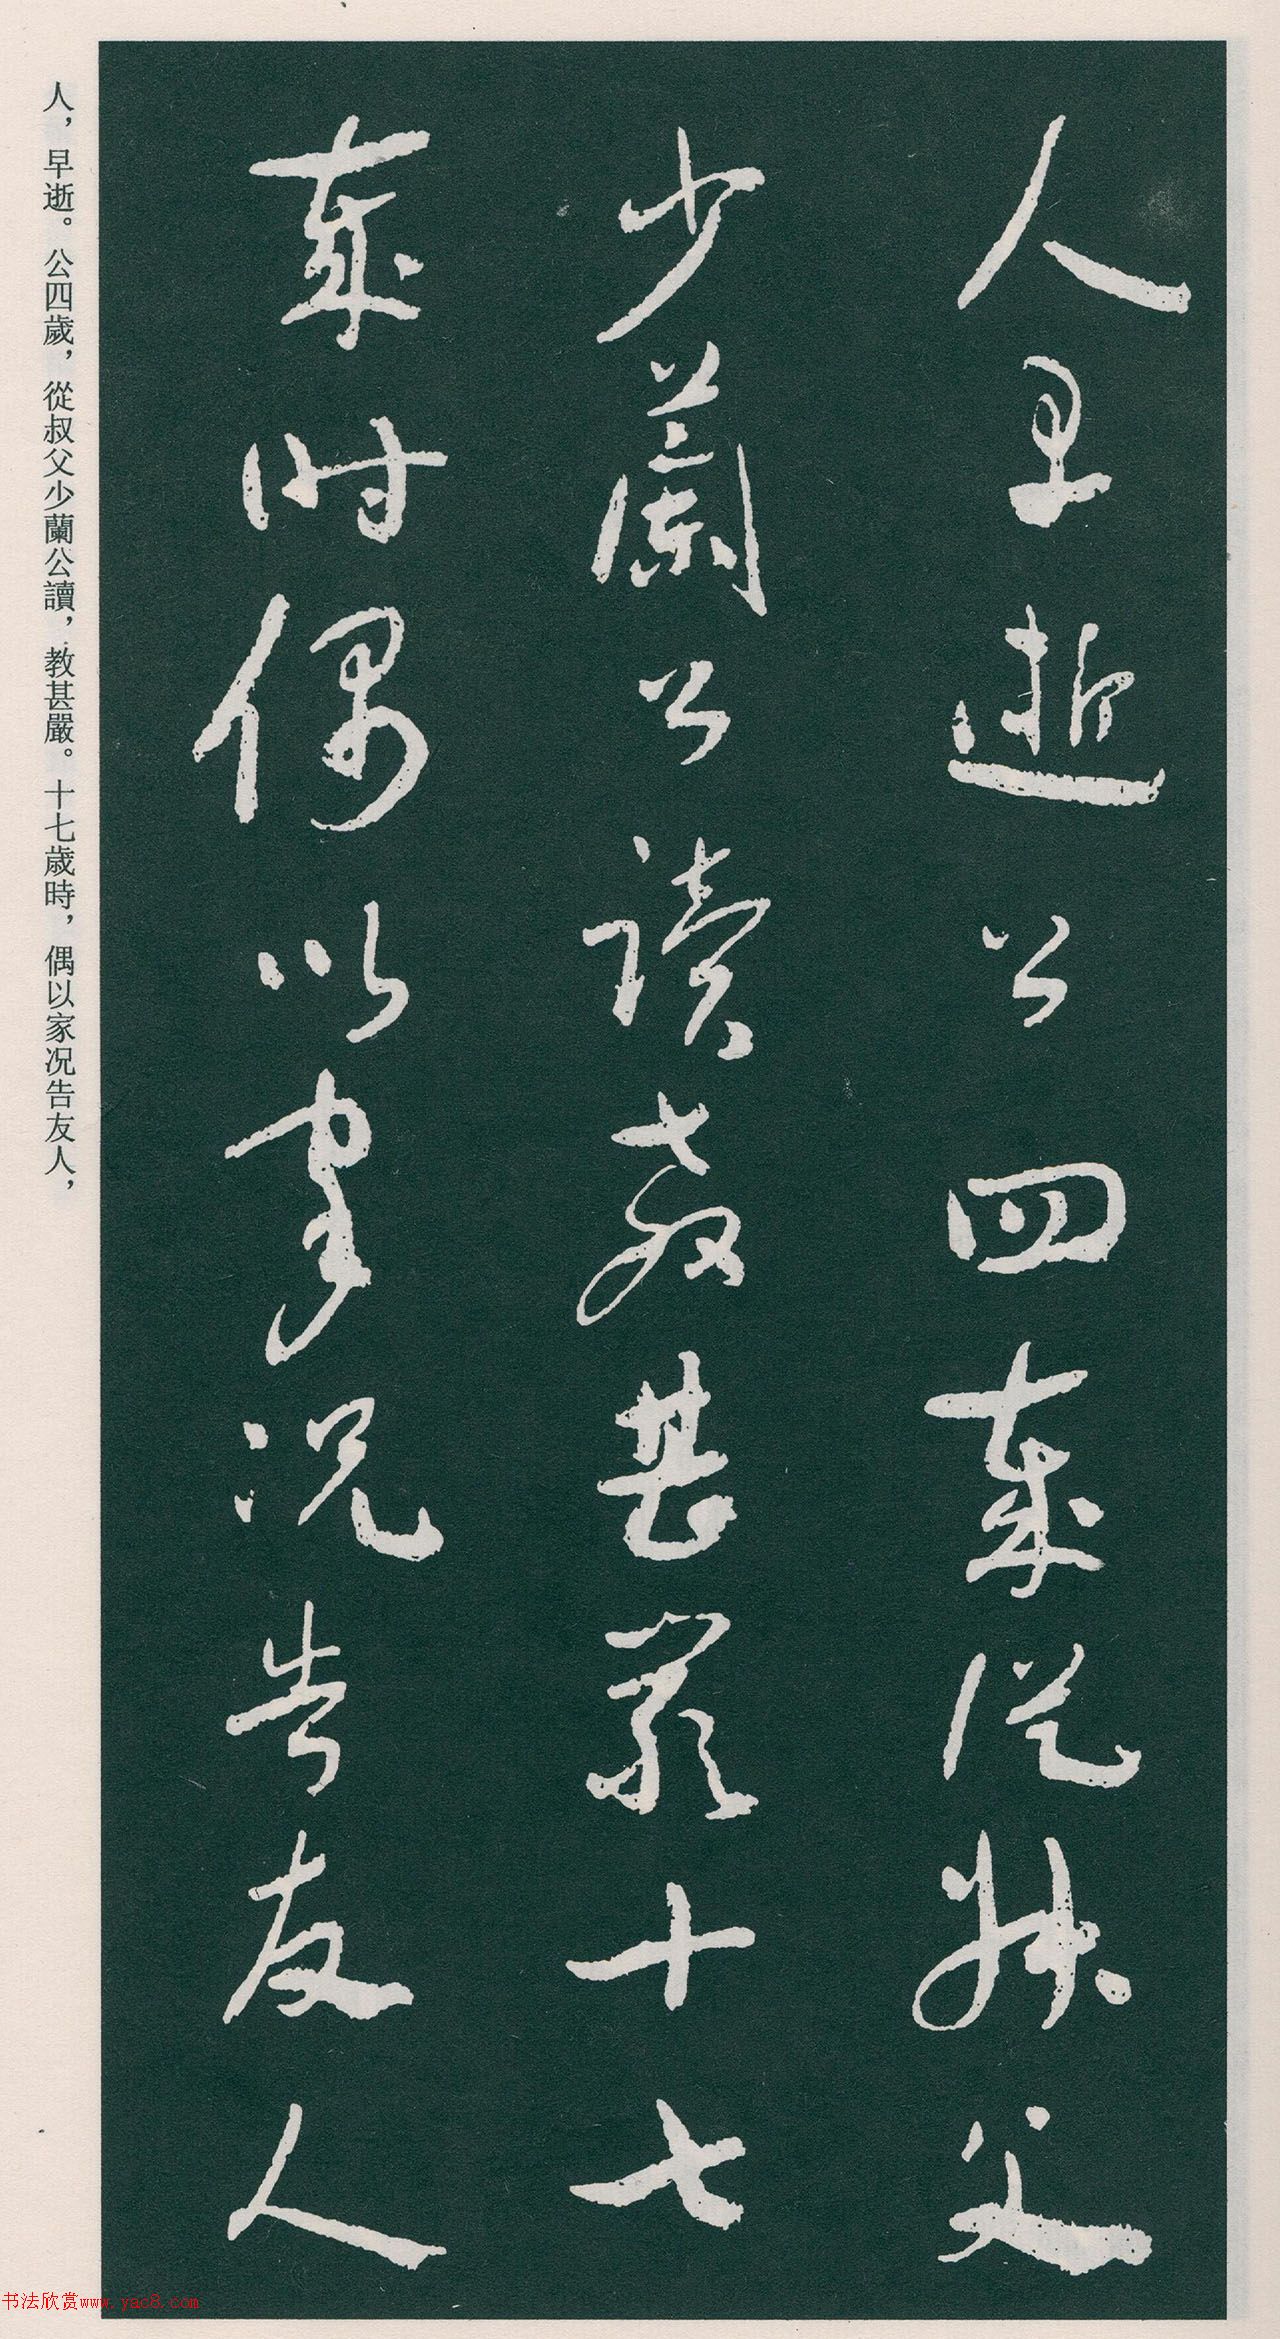 人早逝公四歲從叔父
少蘭公讀教甚嚴十七
歲時偶以家况告友人
人，早逝。公四歲，從叔父少蘭公讀，教甚嚴。十七歲時，偶以家况告友人，
书法欣赏www.yac8.com